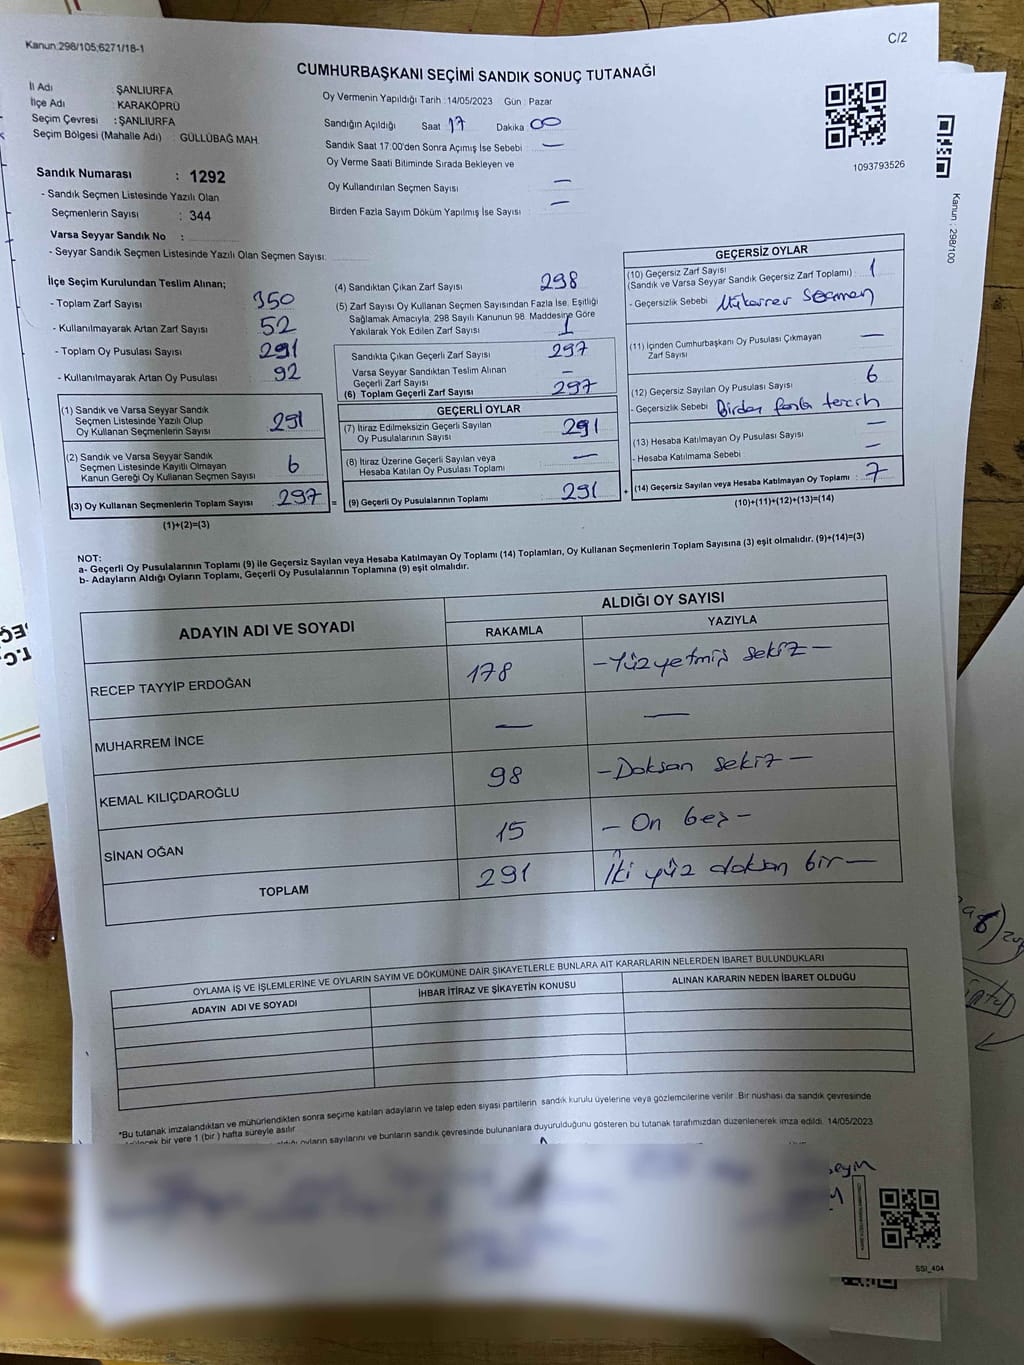 Kanun:298/105;6271/18-1
C/2
CUMHURBAŞKANI SEÇİMİ SANDIK SONUÇ TUTANAĞI
İl Adı : ŞANLIURFA
İlçe Adı : KARAKÖPRÜ
Seçim Çevresi : ŞANLIURFA
Seçim Bölgesi (Mahalle Adı) : GÜLLÜBAĞ MAH.
Sandık Numarası : 1292
- Sandık Seçmen Listesinde Yazılı Olan
Seçmenlerin Sayısı : 344
Varsa Seyyar Sandık No :
- Seyyar Sandık Seçmen Listesinde Yazılı Olan Seçmen Sayısı:
Oy Vermenin Yapıldığı Tarih : 14/05/2023 Gün : Pazar
Sandığın Açıldığı Saat 17 Dakika 00
Sandık Saat 17:00'den Sonra Açımış İse Sebebi —
Oy Verme Saati Bitiminde Sırada Bekleyen ve
Oy Kullandırılan Seçmen Sayısı —
Birden Fazla Sayım Döküm Yapılmış İse Sayısı —
1093793526
Kanun : 298/100
İlçe Seçim Kurulundan Teslim Alınan;
- Toplam Zarf Sayısı 350
- Kullanılmayarak Artan Zarf Sayısı 52
- Toplam Oy Pusulası Sayısı 291
- Kullanılmayarak Artan Oy Pusulası 92
(1) Sandık ve Varsa Seyyar Sandık
Seçmen Listesinde Yazılı Olup
Oy Kullanan Seçmenlerin Sayısı 291
(2) Sandık ve Varsa Seyyar Sandık
Seçmen Listesinde Kayıtlı Olmayan
Kanun Gereği Oy Kullanan Seçmen Sayısı 6
(3) Oy Kullanan Seçmenlerin Toplam Sayısı 297 =
(1)+(2)=(3)
(4) Sandıktan Çıkan Zarf Sayısı 298
(5) Zarf Sayısı Oy Kullanan Seçmen Sayısından Fazla İse, Eşitliği
Sağlamak Amacıyla, 298 Sayılı Kanunun 98. Maddesine Göre
Yakılarak Yok Edilen Zarf Sayısı 1
Sandıkta Çıkan Geçerli Zarf Sayısı 297
Varsa Seyyar Sandıktan Teslim Alınan
Geçerli Zarf Sayısı —
(6) Toplam Geçerli Zarf Sayısı 297
GEÇERLİ OYLAR
(7) İtiraz Edilmeksizin Geçerli Sayılan
Oy Pusulalarının Sayısı 291
(8) İtiraz Üzerine Geçerli Sayılan veya
Hesaba Katılan Oy Pusulası Toplamı —
(9) Geçerli Oy Pusulalarının Toplamı 291 +
GEÇERSİZ OYLAR
(10) Geçersiz Zarf Sayısı
(Sandık ve Varsa Seyyar Sandık Geçersiz Zarf Toplamı) : 1
- Geçersizlik Sebebi Mükerrer Seçmen
(11) İçinden Cumhurbaşkanı Oy Pusulası Çıkmayan
Zarf Sayısı —
(12) Geçersiz Sayılan Oy Pusulası Sayısı 6
- Geçersizlik Sebebi Birden fazla tercih
(13) Hesaba Katılmayan Oy Pusulası Sayısı —
- Hesaba Katılmama Sebebi —
(14) Geçersiz Sayılan veya Hesaba Katılmayan Oy Toplamı : 7
(10)+(11)+(12)+(13)=(14)
NOT:
a- Geçerli Oy Pusulalarının Toplamı (9) ile Geçersiz Sayılan veya Hesaba Katılmayan Oy Toplamı (14) Toplamları, Oy Kullanan Seçmenlerin Toplam Sayısına (3) eşit olmalıdır. (9)+(14)=(3)
b- Adayların Aldığı Oyların Toplamı, Geçerli Oy Pusulalarının Toplamına (9) eşit olmalıdır.
ADAYIN ADI VE SOYADI
ALDIĞI OY SAYISI
RAKAMLA YAZIYLA
RECEP TAYYİP ERDOĞAN 178 - Yüzyetmiş sekiz -
MUHARREM İNCE — —
KEMAL KILIÇDAROĞLU 98 - Doksan sekiz -
SİNAN OĞAN 15 - On beş -
TOPLAM 291 İki yüz doksan bir -
OYLAMA İŞ VE İŞLEMLERİNE VE OYLARIN SAYIM VE DÖKÜMÜNE DAİR ŞİKAYETLERLE BUNLARA AİT KARARLARIN NELERDEN İBARET BULUNDUKLARI
ADAYIN ADI VE SOYADI İHBAR İTİRAZ VE ŞİKAYETİN KONUSU ALINAN KARARIN NEDEN İBARET OLDUĞU
*Bu tutanak imzalandıktan ve mühürlendikten sonra seçime katılan adayların ve talep eden siyasi partilerin sandık kurulu üyelerine veya gözlemcilerine verilir. Bir nüshası da sandık çevresinde
bir yere 1 (bir) hafta süreyle asılır.
oyların sayılarını ve bunların sandık çevresinde bulunanlara duyurulduğunu gösteren bu tutanak tarafımızdan düzenlenerek imza edildi. 14/05/2023
SSI_404